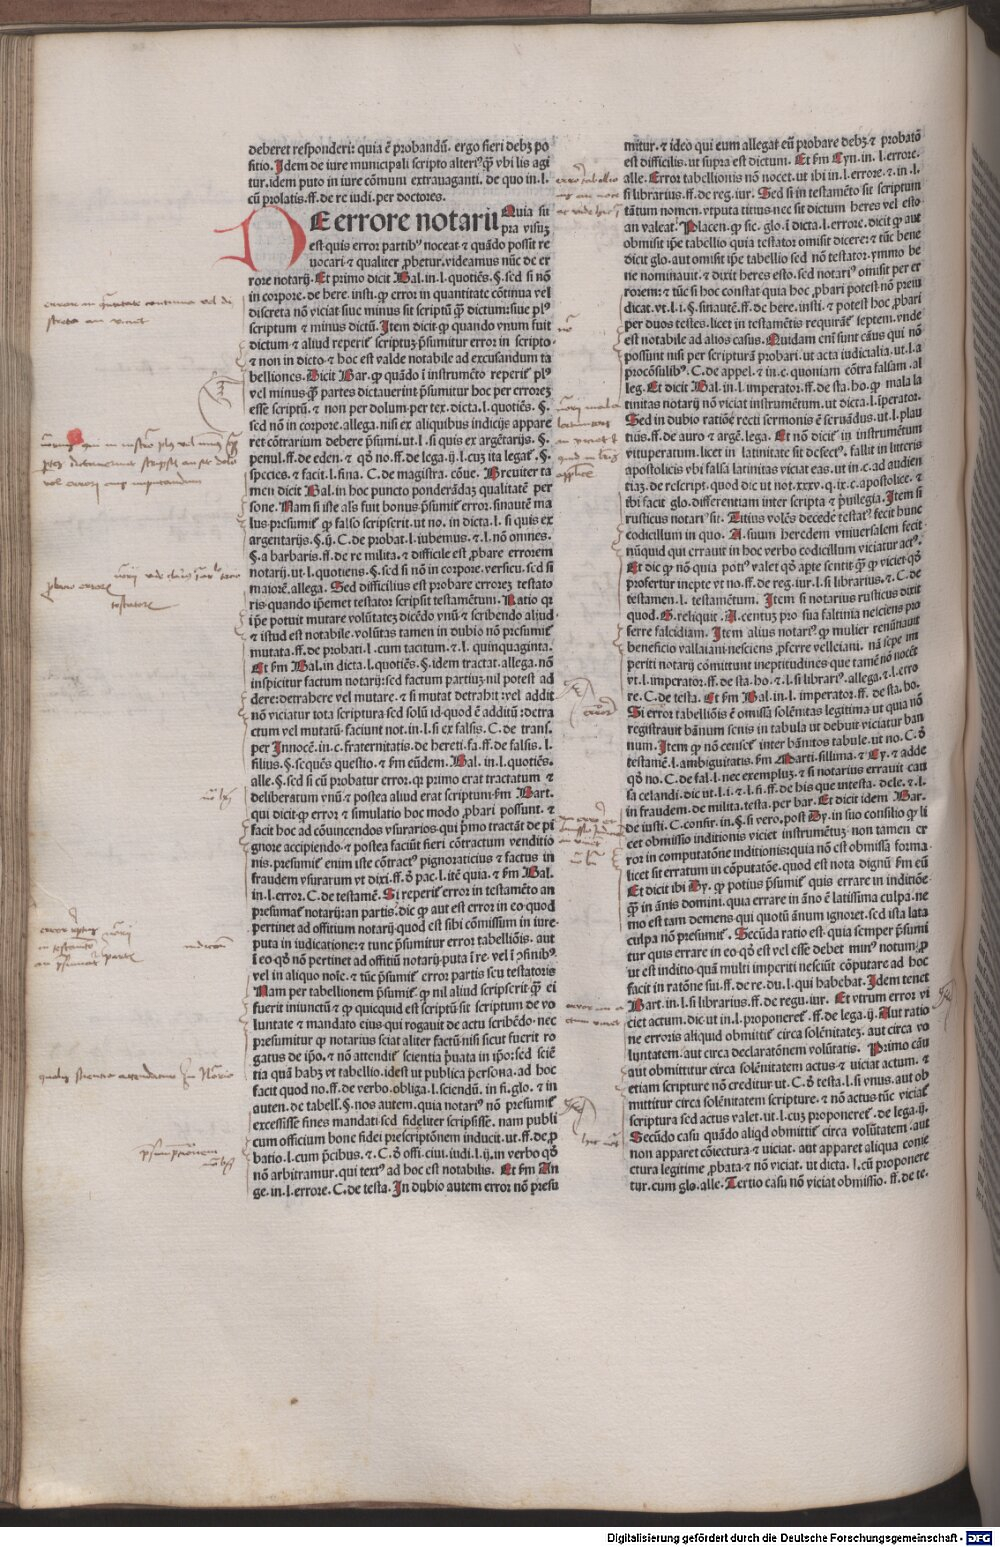 deberet responderi: quia ē probandū. ergo fieri debꝫ po
sitio. Idem de iure municipali scripto alteriꝰ qͣꝫ vbi lis agi
tur. idem puto in iure cōmuni extrauaganti. de quo in. l.
cū prolatis. ff. de re iudi. per doctores.
DE errore notarii Quia su
pra visuꝫ
est quis error partibꝰ noceat ⁊ quādo possit re
uocari ⁊ qualiter ꝓbetur. videamus nūc de er
rore notarij. Et primo dicit Bal. in. l. quotiēs. §. sed si nō
in corpore. de here. insti. ꝙ error in quantitate cōtinua vel
discreta nō viciat siue minus sit scriptū qͣꝫ dictum: siue plꝰ
scriptum ⁊ minus dictū. Item dicit ꝙ quando vnum fuit
dictum ⁊ aliud reperit̄ scriptuꝫ p̄sumitur error in scripto.
⁊ non in dicto ⁊ hoc est valde notabile ad excusandum ta
belliones. Dicit Bar. ꝙ quādo ī instrumēto reperit̄ plꝰ
vel minus qͣꝫ partes dictauerint p̄sumitur hoc per erroreꝫ
esse scriptū. ⁊ non per dolum. per tex. dicta. l. quotiēs. §.
sed nō in corpore. allega. nisi ex aliquibus indicijs appare
ret cōtrarium debere p̄sumi. ut. l. si quis ex argētarijs. §.
penul. ff. de eden. ⁊ qͦ no. ff. de lega. ij. l. cuꝫ ita legat̄. §.
species. ⁊ facit. l. fina. C. de magistra. cōue. Breuiter ta
men dicit Bal. in hoc puncto ponderādaꝫ qualitatē per
sone. Nam si iste als̄ fuit bonus p̄sumit̄ error. sinautē ma
lus presumit̄ ꝙ falso scripserit. ut no. in dicta. l. si quis ex
argentarijs. §. ij. C. de probat. l. iubemus. ⁊. l. nō omnes.
§. a barbaris. ff. de re milita. ⁊ difficile est ꝓbare errorem
notarij. ut. l. quotiens. §. sed si nō in corpore. versicu. sed si
maiorē. allega. Sed difficilius est probare erroreꝫ testato
ris quando ip̄emet testator scripsit testamētum. Ratio qꝛ
ip̄e potuit mutare volūtateꝫ dicēdo vnū ⁊ scribendo aliud.
⁊ istud est notabile. volūtas tamen in dubio nō presumit̄
mutata. ff. de probati. l. cum tacitum. ⁊. l. quinquaginta.
Et ẜm Bal. in dicta. l. quotiēs. §. idem tractat. allega. nō
inspicitur factum notarij: sed factum partiuꝫ. nil potest ad
dere: detrahere vel mutare. ⁊ si mutat detrahit: vel addit
nō viciatur tota scriptura sed solū id quod ē additū: detra
ctum vel mutatū. faciunt not. in. l. si ex falsis. C. de trans.
per Innocē. in. c. fraternitatis. de hereti. fa. ff. de falsis. l.
filius. §. sequēs questio. ⁊ ẜm eūdem. Bal. in. l. quotiēs.
alle. §. sed si cū probatur error. ꝙ primo erat tractatum ⁊
deliberatum vnū ⁊ postea aliud erat scriptum. ẜm Bart.
qui dicit ꝙ error ⁊ simulatio hoc modo ꝓbari possunt. ⁊
facit hoc ad cōuincendos vsurarios. qui p̄mo tractāt de pi
gnore accipiendo. ⁊ postea faciūt fieri cōtractum venditio
nis. presumit̄ enim iste cōtractꝰ pignoraticius ⁊ factus in
fraudem vsurarum vt dixi. ff. ō pac. l. itē quia. ⁊ ẜm Bal.
in. l. error. C. de testamē. Si reperit̄ error in testamēto an
presumat̄ notarij: an partis. dic ꝙ aut est error in eo quod
pertinet ad offitium notarij quod est sibi cōmissum in iure.
puta in iudicatione: ⁊ tunc p̄sumitur error tabelliōis. aut
ī eo. qͦ nō pertinet ad offitiū notarij puta ī re. vel ī ↄfinibꝰ
vel in aliquo noīe. ⁊ tūc p̄sumit̄ error partis seu testatoris
Nam per tabellionem p̄sumit̄ ꝙ nil aliud scripserit qͣꝫ ei
fuerit iniunctū ⁊ ꝙ quicquid est scriptū sit scriptum de vo
luntate ⁊ mandato eius qui rogauit de actu scribēdo. nec
presumitur ꝙ notarius sciat aliter factū. nisi sicut fuerit ro
gatus de ip̄o. ⁊ nō attendit̄ scientia p̄uata in ip̄o: sed sciē
tia quā habꝫ vt tabellio. idest ut publica p̄sona. ad hoc
facit quod no. ff. de verbo. obliga. l. sciendū. in fi. glo. ⁊ in
auten. de tabell. §. nos autem. quia notariꝰ nō presumit̄
excessisse fines mandati sed fideliter scripsisse. nam publi
cum officium bone fidei prescriptōnem inducit. ut. ff. de ꝓ
batio. l. cum p̄cibus. ⁊. C. ō offi. ciui. iudi. l. ij. in verbo qͦ
nō arbitramur. qui textꝰ ad hoc est notabilis. Et ẜm An
ge. in. l. errore. C. de testa. In dubio autem error nō presu
mitur. ⁊ ideo qui eum allegat eū probare debꝫ ⁊ probatō
est difficilis. ut supra est dictum. Et ẜm Cyn. in. l. errore.
alle. Error tabellionis nō nocet. ut ibi in. l. errore. ⁊. in. l.
si librarius. ff. de reg. iur. Sed si in testamēto sit scriptum
tātum nomen. vtputa titius. nec sit dictum heres vel esto
an valeat. Placen. ꝙ sic. glo. ī dicta. l. errore. dicit ꝙ aut
obmisit ip̄e tabellio quia testator omisit dicere: ⁊ tūc bene
dicit glo. aut omisit ip̄e tabellio sed nō testator. ymmo be
ne nominauit. ⁊ dixit heres esto. sed notariꝰ omisit per er
rorem: ⁊ tūc si hoc constat quia hoc ꝓbari potest nō preiu
dicat. vt. l. i. §. sinautē. ff. de here. insti. ⁊ potest hoc ꝓbari
per duos testes. licet in testamētis requirāt̄ septem. vnde
est notabile ad alios casus. Quidam enī sunt cāus qui nō
possunt nisi per scripturā probari. ut acta iudicialia. ut. l. a
procōsulibꝰ. C. de appel. ⁊ in. c. quoniam cōtra falsam. al
leg. Et dicit Bal. in. l. imperator. ff. de sta. ho. ꝙ mala la
tinitas notarij nō viciat instrumētum. ut dicta. l. īperator.
Sed in dubio ratiōe recti sermonis ē seruādus. ut. l. plau
tius. ff. de auro ⁊ argē. lega. Et nō dicit̄ in instrumētum
vituperatum. licet in latinitate sit defectꝰ. fallit in litteris
apostolicis vbi falsa latinitas viciat eas. ut in. c. ad audien
tiaꝫ. de rescript. quod dic ut not. xxxv. q. ix. c. apostolice. ⁊
ibi facit glo. differentiam inter scripta ⁊ p̄uilegia. Item si
rusticus notariꝰ sit. Titius volēs decede testatꝰ fecit hunc
codicillum in quo. A. suum heredem vniuersalem fecit
nūquid qui errauit in hoc verbo codicillum viciatur actꝰ.
Et dic ꝙ nō quia potiꝰ valet qͦ apte sentit qͣꝫ ꝙ viciet qͦ
profertur inepte vt no. ff. de reg. iur. l. si librarius. ⁊. C. de
testamen. l. testamētum. Item si notarius rusticus dixit
quod. G. reliquit. A. centuꝫ pro sua faltinia nesciens pro
ferre falcidiam. Item alius notariꝰ ꝙ mulier renūtiauit
beneficio vallaiani nesciens ꝓferre velleiani. nā sepe im
periti notarij cōmittunt ineptitudines que tamē nō nocēt
vt. l. imperator. ff. de sta. ho. ⁊. l. si librariꝰ. allega. ⁊. l. erro
re. C. de testa. Et ẜm Bal. in. l. imperator. ff. de sta. ho.
Si error tabelliōis ē omissa solēnitas legitima ut quia nō
registrauit bānum scnis in tabula ut debuit viciatur ban
num. Item ꝙ nō censet̄ inter bānitos tabule. ut no. C. ō
testamē. l. ambiguitatis. ẜm Marti. sillima. ⁊ Cy. ⁊ adde
qͦ no. C. de fal. l. nec exempluꝫ. ⁊ si notarius errauit cau
sa celandi. dic ut. l. i. ⁊. l. fi. ff. de his que intesta. dele. ⁊. l.
in fraudem. de milita. testa. per bar. Et dicit idem Bar.
de iusti. C. confir. in. §. si vero. post Dy. in suo consilio ꝙ li
cet obmissio inditionis viciet instrumētuꝫ non tamen er
ror in computatōne inditionis: quia nō est obmissa forma
licet sit erratum in cōputatōe. quod est nota dignū ẜm eū
Et dicit ibi Dy. ꝙ potius p̄sumit̄ quis errare in inditiōe
qͣꝫ in ānis domini. quia errare in āno ē latissima culpa. ne
mo est tam demens qui quotū ānum ignoret. sed ista lata
culpa nō presumit̄. Secūda ratio est. quia semper p̄sumi
tur quis errare in eo qͦ est vel esse debet minꝰ notum: ꝓ
ut est inditio quā multi imperiti nesciūt cōputare ad hoc
facit in ratōne sui. ff. de re. du. l. qui habebat. Idem tenet
Bart. in. l. si librarius. ff. de regu. iur. Et vtrum error vi
ciet actum. dic. ut in. l. proponeret̄. ff. de lega. ij. Aut ratio
ne erroris aliquid obmittit̄ circa solēnitateꝫ. aut circa vo
luntatem. aut circa declaratōnem volūtatis. Primo cāu
aut obmittitur circa solēnitatem actus ⁊ uiciat actum. ⁊
etiam scripture nō creditur ut. C. ō testa. l. si vnus. aut ob
mittitur circa solēnitatem scripture. ⁊ nō actus tūc viciat̄
scriptura sed actus valet. ut. l. cuꝫ proponeret̄. de lega. ij.
Secūdo casu quādo aliqd obmittit̄ circa volūtatem. aut
non apparet cōiectura ⁊ uiciat. aut apparet aliqua conie
ctura legitime ꝓbata ⁊ nō viciat. ut dicta. l. cū proponere
tur. cum glo. alle. Tertio casu nō viciat obmissio. ff. de te.
Digitalisierung gefördert durch die Deutsche Forschungsgemeinschaft - DFG